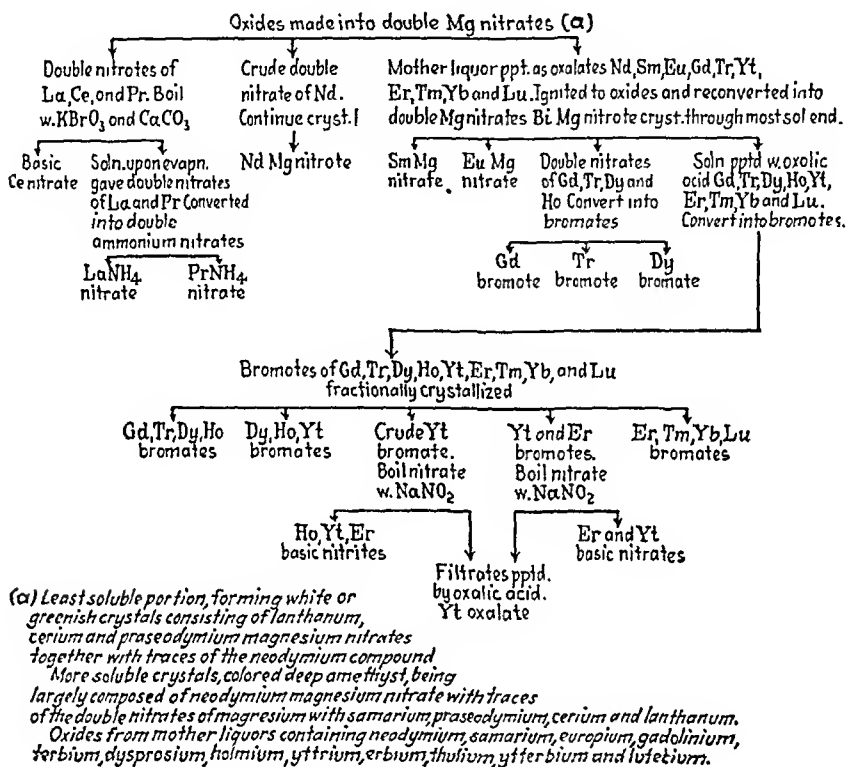 Oxides made into double Mg nitrates (a)
Double nitrates of
La, Ce, and Pr. Boil
w. KBrO3 and CaCO3
Crude double
nitrate of Nd.
Continue cryst.
Mother liquor ppt. as oxalates Nd, Sm, Eu, Gd, Tr, Yt,
Er, Tm, Yb and Lu. Ignited to oxides and reconverted into
double Mg nitrates Bi Mg nitrate cryst. through most sol end.
Basic
Ce nitrate
Soln. upon evapn.
gave double nitrates
of La and Pr Converted
into double
ammonium nitrates
Nd Mg nitrate
Sm Mg
nitrate
Eu Mg
nitrate
Double nitrates
of Gd, Tr, Dy and
Ho Convert into
bromates
Soln pptd w. oxalic
acid Gd, Tr, Dy, Ho, Yt,
Er, Tm, Yb and Lu.
Convert into bromates.
LaNH4
nitrate
PrNH4
nitrate
Gd
bromate
Tr
bromate
Dy
bromate
Bromates of Gd, Tr, Dy, Ho, Yt, Er, Tm, Yb, and Lu
fractionally crystallized
Gd, Tr, Dy, Ho
bromates
Dy, Ho, Yt
bromates
Crude Yt
bromate.
Boil nitrate
w. NaNO2
Yt and Er
bromates.
Boil nitrate
w. NaNO2
Er, Tm, Yb, Lu
bromates
Ho, Yt, Er
basic nitrites
Filtrates pptd.
by oxalic acid.
Yt oxalate
Er and Yt
basic nitrates
(a) Least soluble portion, forming white or
greenish crystals consisting of lanthanum,
cerium and praseodymium magnesium nitrates
together with traces of the neodymium compound
More soluble crystals, colored deep amethyst, being
largely composed of neodymium magnesium nitrate with traces
of the double nitrates of magresium with samarium, praseodymium, cerium and lanthanum.
Oxides from mother liquors containing neodymium, samarium, europium, gadolinium,
terbium, dysprosium, holmium, yttrium, erbium, thulium, ytterbium and lutecium.